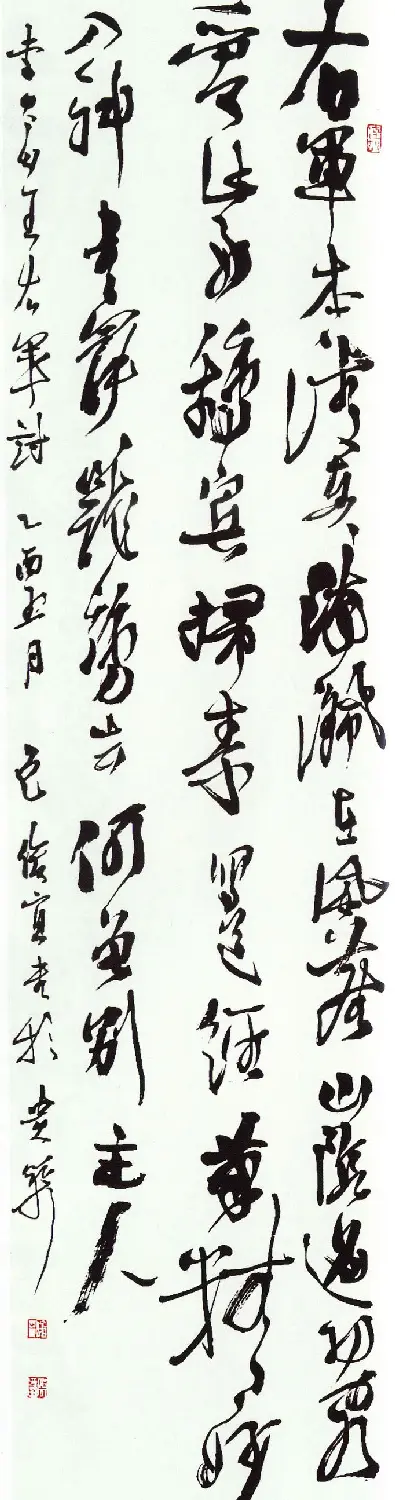 右軍本清真瀟灑在風塵山陰過羽客
愛此好鵝賓掃素寫道經筆精妙
入神書罷籠鵝去何曾別主人
李太白王右軍詩 乙酉 月 宜書於貴